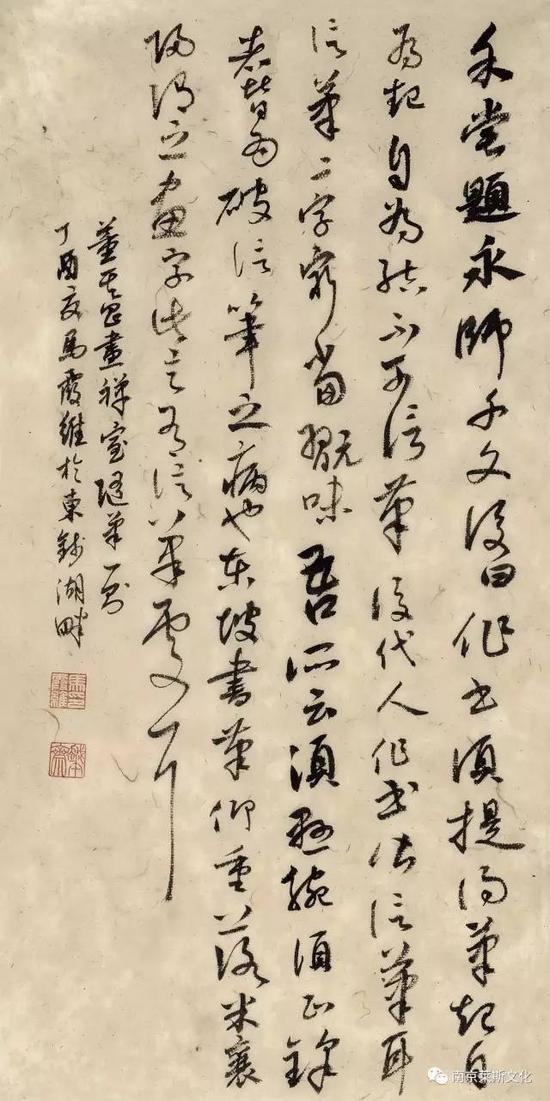 余嘗題永師千文後曰作書須提得筆起自
為起自為結不可信筆後代人作書皆信筆耳
信筆二字最當翫味吾所云須懸腕須正鋒
者皆為破信筆之病也東坡書筆仰重落米襄
陽謂之畫字此言有信筆處耳
董其昌畫禪室隨筆一則
丁酉夏馬霞維於東錢湖畔
南京莱斯文化